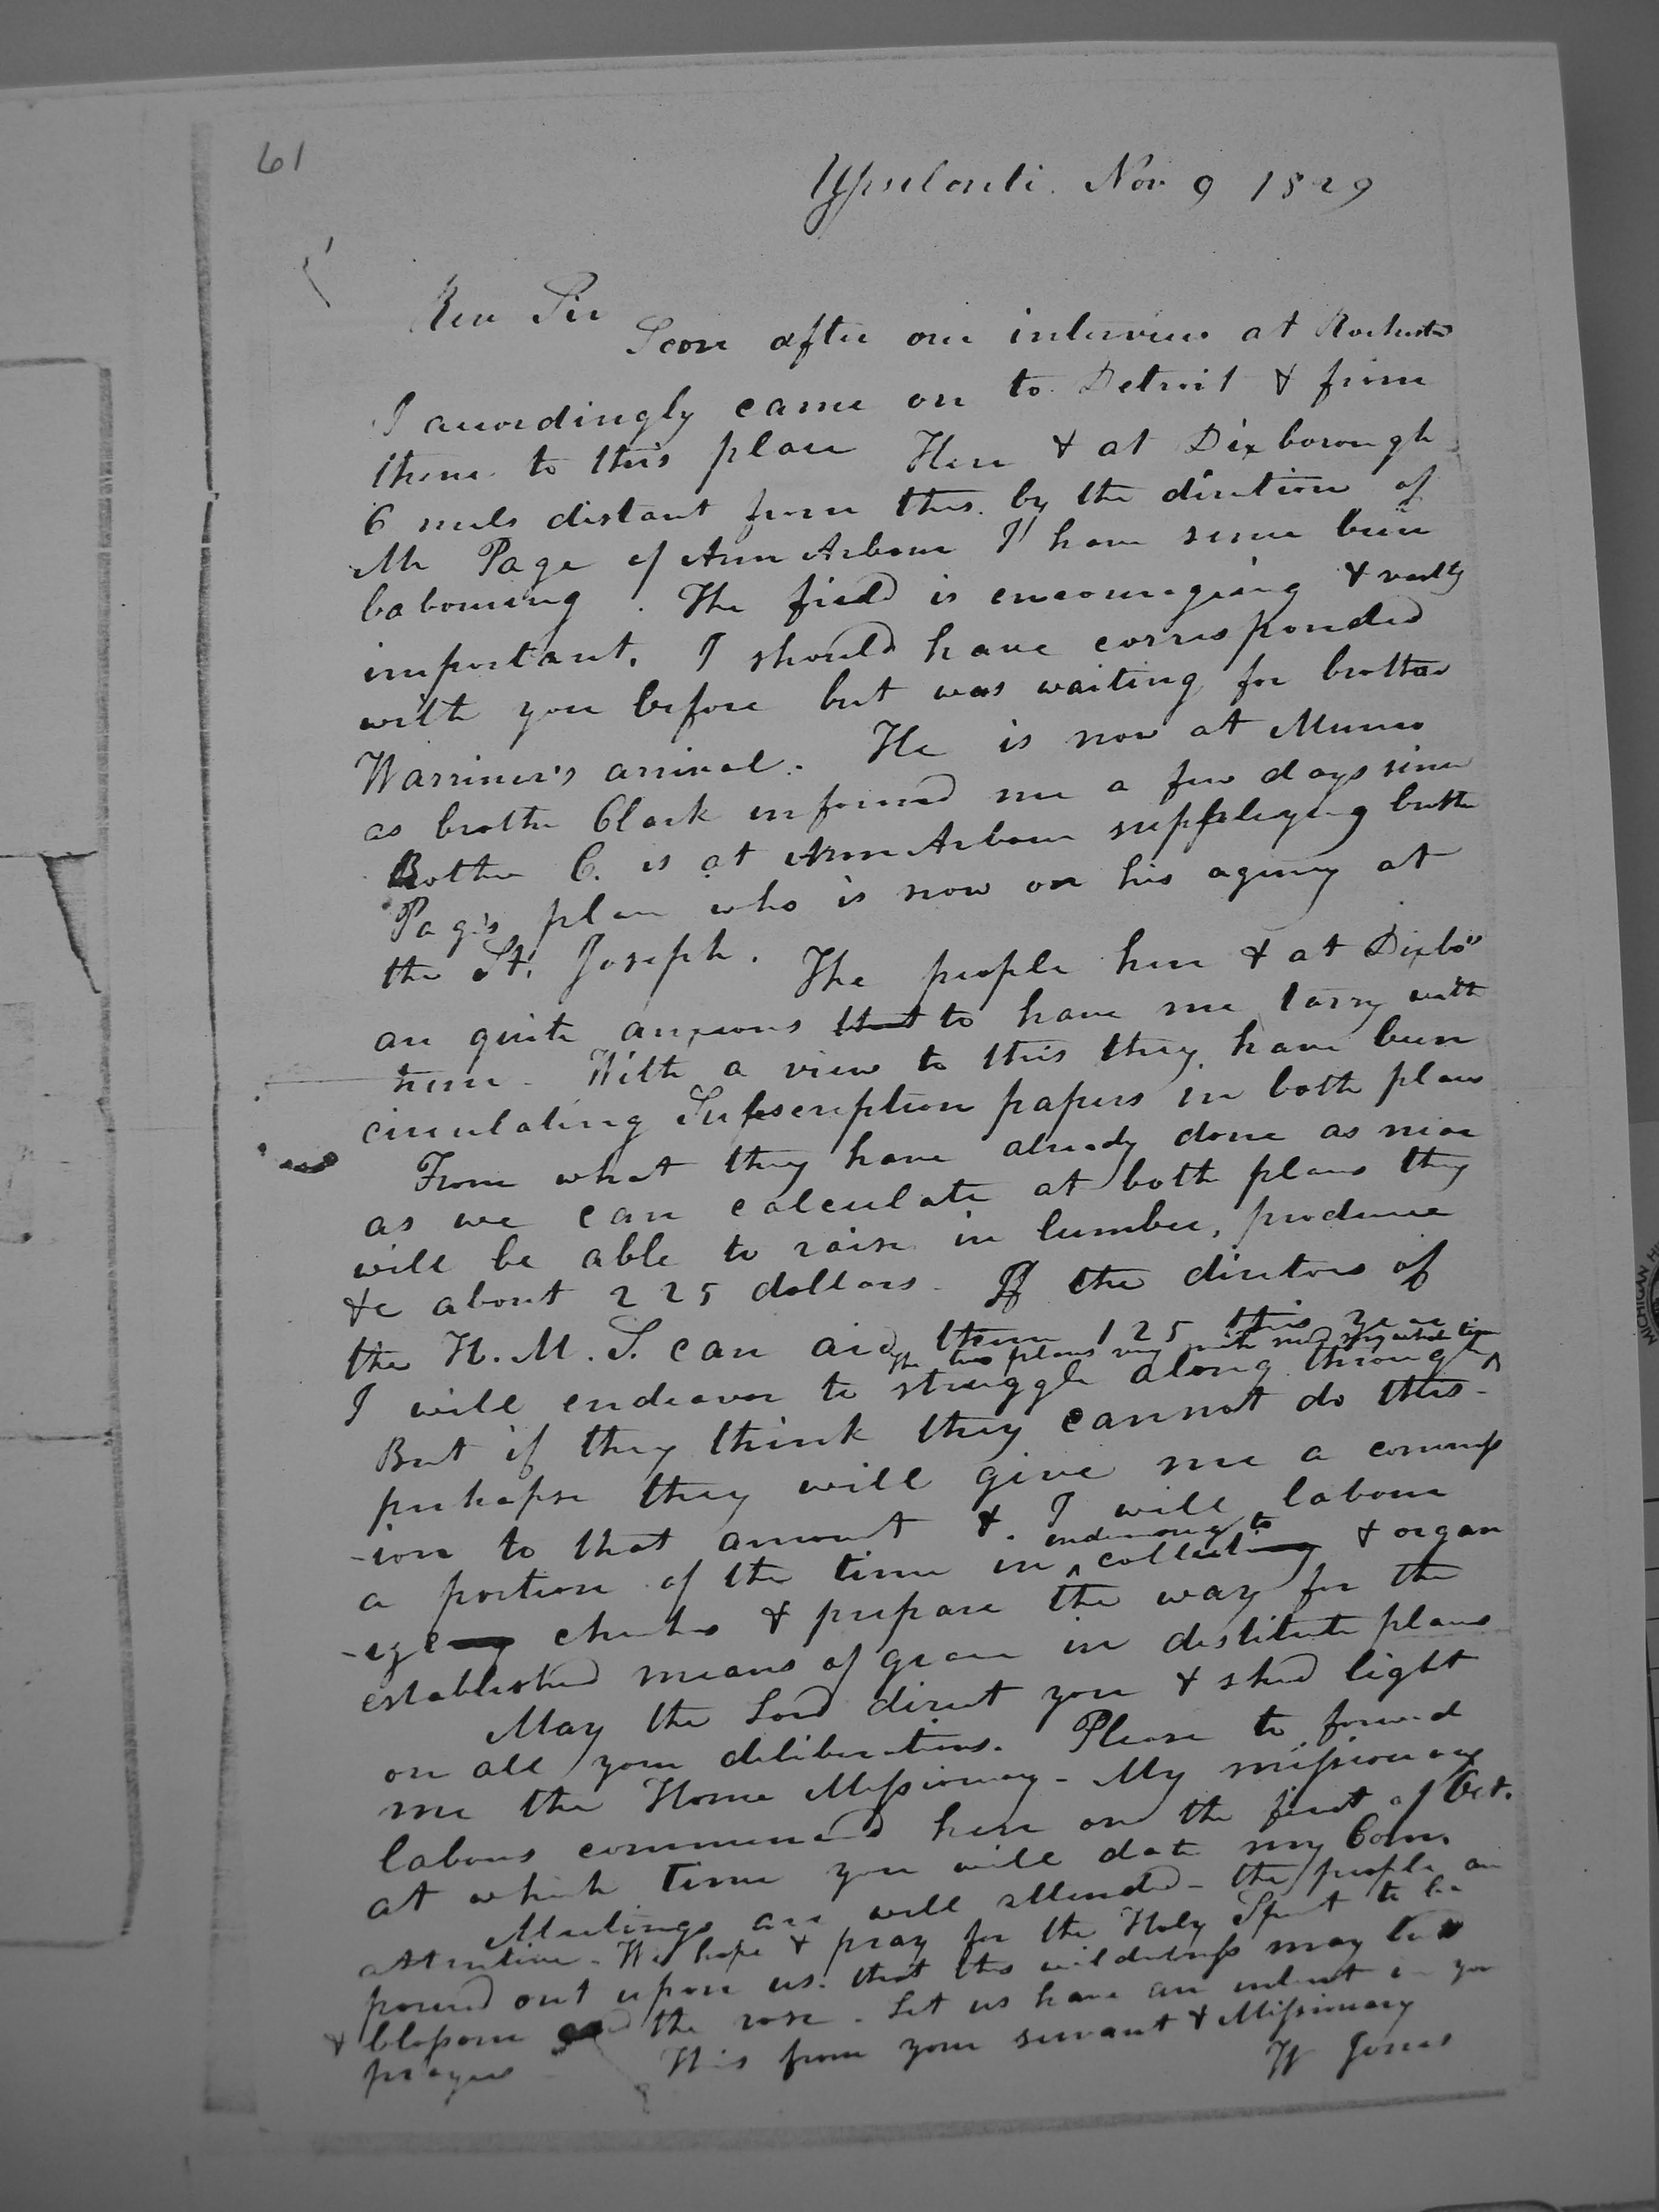 61
Ypsilanti. Nov 9 1829
Rev Sir
Soon after our interview at Rochester
I accordingly came on to Detroit & from
thence to this place Here & at Dixborough
6 miles distant from this. by the direction of
Mr Page of Ann Arbour I have since been
labouring. The field is encouraging & vastly
important. I should have corresponded
with you before but was waiting for brother
Warriner's arrival. He is now at Munro
as brother Clark informed me a few days since
Brother C. is at Ann Arbour supplying brother
Page's place who is now on his agency at
the St. Joseph. The people here & at Dixbo"
are quite anxious that to have me tarry with
them. With a view to this they have been
circulating Subscription papers in both places
From what they have already done as near
as we can calculate at both places they
will be able to raise in lumber, produce
&c about 225 dollars. If the directors of
the H. M. S. can aid them 125 this year
the two places my whole time
I will endeavor to struggle along through
But if they think they cannot do this-
perhapse they will give me a commiss
-ion to that amount &. I will labour
endeavouring to
a portion of the time in collecting & organ
-ize churches & prepare the way for the
established means of grace in destitute places
May the Lord direct you & shed light
on all your deliberations. Please to forward
me the Home Missionary - My missionary
labours commenced here on the first of Oct.
at which time you will date my Com.
Meetings are well attended - the people are
attentive. We hope & pray for the Holy Spirit to be
poured out upon us. that this wilderness may bud
& blossom the rose. Let us have an interest in your
prayers This from your servant & Missionary
W Jones
MICHIGAN HI